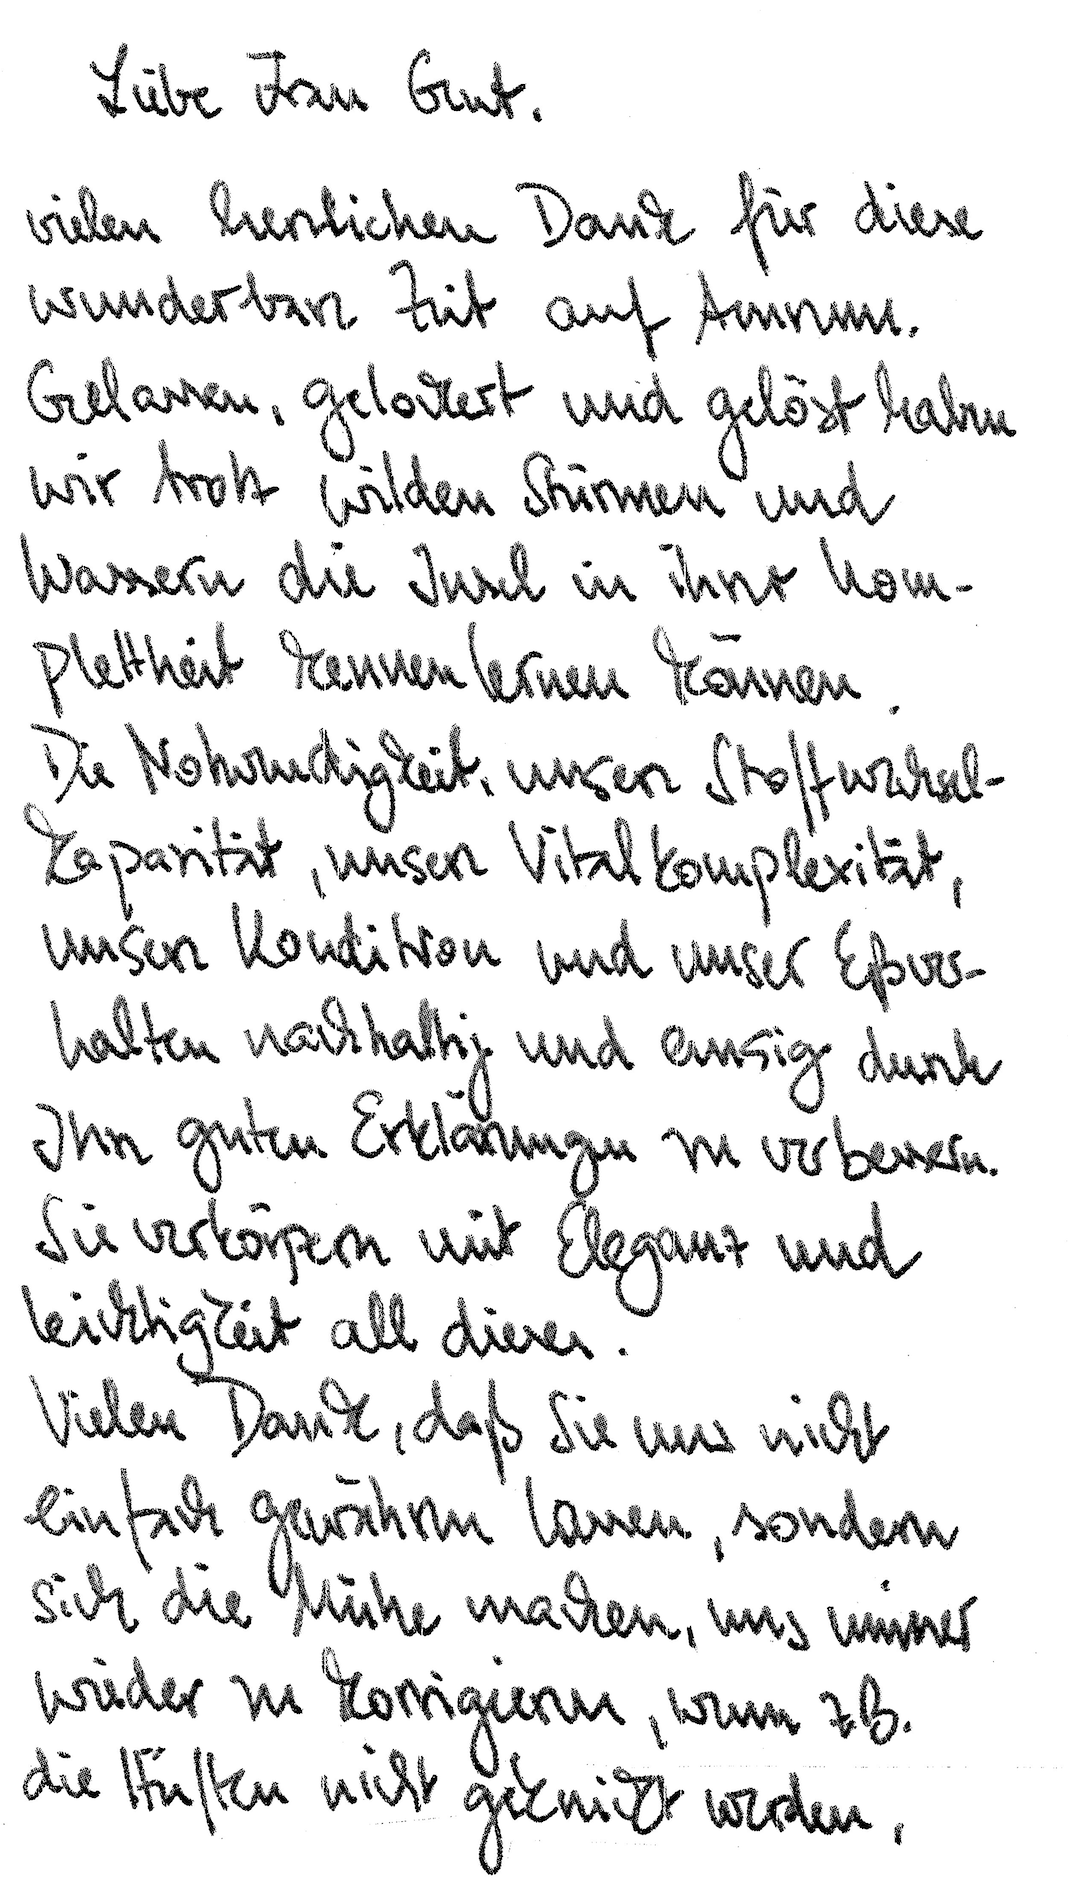 Liebe Frau Grut.
vielen herzlichen Dank für diese
wunderbare Zeit auf Amrum.
Gelassen, gelockert und gelöst haben
wir trotz wilden Stürmen und
Wassern die Insel in ihrer Kom-
plettheit kennenlernen können.
Die Notwendigkeit, unsere Stoffwechsel-
kapazität, unsere Vitalkomplexität,
unsere Kondition und unser Eßver-
halten nachhaltig und emsig durch
Ihre guten Erklärungen zu verbessern.
Sie verkörpern mit Eleganz und
Leichtigkeit all dieses.
Vielen Dank, daß Sie uns nicht
einfach gewähren lassen, sondern
sich die Mühe machen, uns immer
wieder zu korrigieren, wenn z.B.
die Hüften nicht geknickt werden,